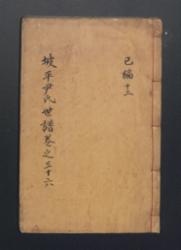 己編 十三
坡平尹氏世譜卷之三十六